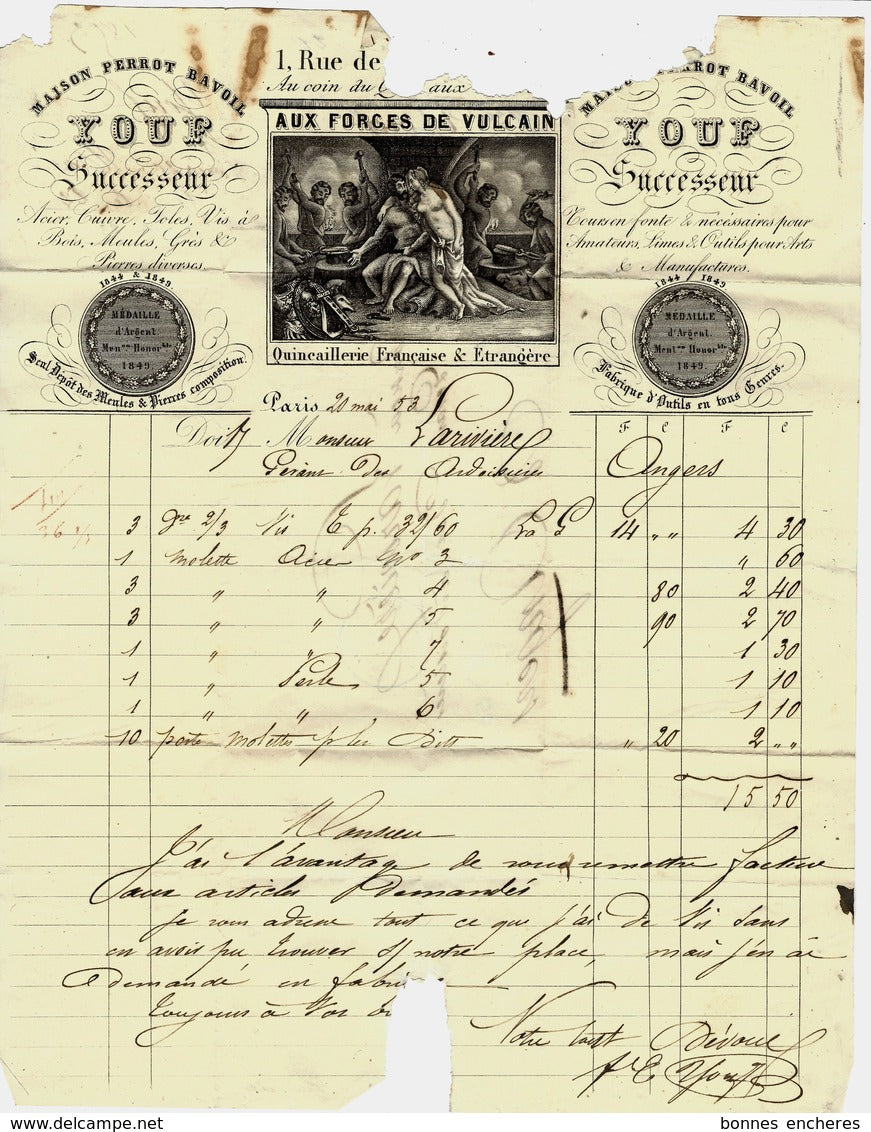 MAISON PERROT BAVOIL
YOUF
Successeur
Acier, Cuivre, Toles, Vis à
Bois, Meules, Grès &
Pierres diverses.
1844 & 1849
MÉDAILLE
d'Argent.
Men.on Honor.ble
1849
Seul Dépôt des Meules & Pierres composition.
1, Rue de
Au coin du Q aux
AUX FORGES DE VULCAIN
Quincaillerie Française & Etrangère
MAIS PERROT BAVOIL
YOUF
Successeur
Tours en fonte & nécessaires pour
Amateurs, Limes & Outils pour Arts
& Manufactures.
1844 1849
MÉDAILLE
d'Argent.
Ment.on Honor.ble
1849.
Fabrique d'Outils en tous Genres.
Paris 20 mai 53
Doit Monsieur Larivière
F C F C
Gérant des Ardoisières Angers
3 gse 2/3 Vis T p. 32/60 14 " " 4 30
1 molette Acier No 3 " 60
3 " " 4 80 2 40
3 " " 5 90 2 70
1 " " 7 1 30
1 " Perle 5 1 10
1 " " 6 1 10
10 porte molettes p les Dits " 20 2 " "
15 50
Monsieur
J'ai l'avantage de vous remettre facture
aux articles Demandés
Je vous adresse tout ce que j'ai de Vis sans
en avoir pu trouver s/ notre place, mais j'en ai
demandé en fabri
toujours à Vos or
Votre tout Dévoué
Youf
bonnes encheres